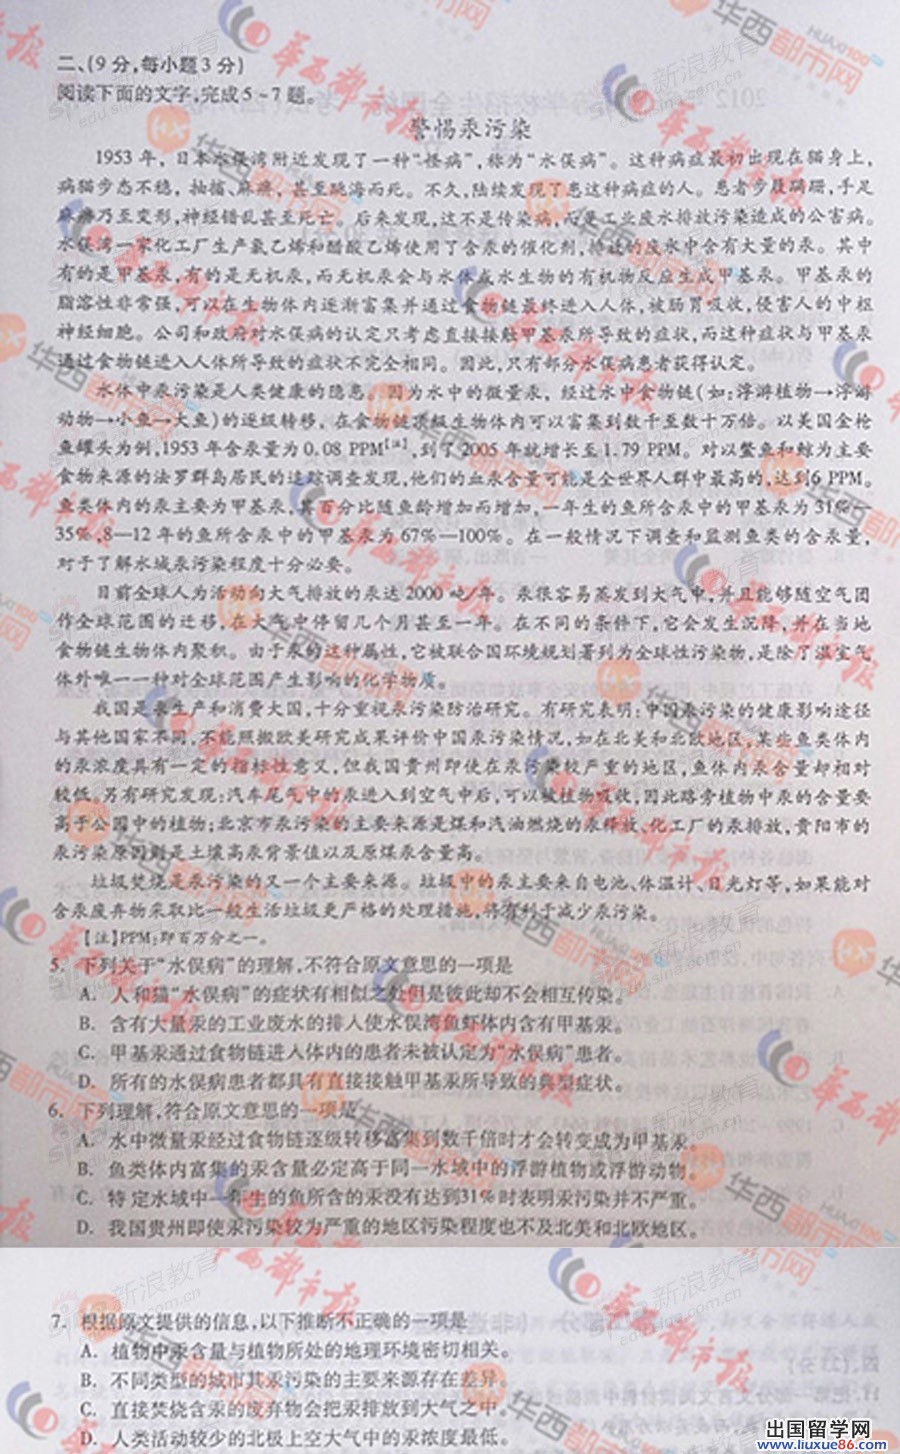 二、(9分,每小题3分)
阅读下面的文字,完成5~7题。
警惕汞污染
1953年,日本水俣湾附近发现了一种“怪病”,称为“水俣病”。这种病症最初出现在猫身上,
病猫步态不稳,抽搐、麻痹,甚至跳海而死。不久,陆续发现了患这种病症的人。患者步履蹒跚,手足
麻痹乃至变形,神经错乱甚至死亡。后来发现,这不是传染病,而是工业废水排放污染造成的公害病。
水俣湾一家化工厂生产氯乙烯和醋酸乙烯使用了含汞的催化剂,排放的废水中含有大量的汞。其中
有的是甲基汞,有的是无机汞,而无机汞会与水体或水生物的有机物反应生成甲基汞。甲基汞的
脂溶性非常强,可以在生物体内逐渐富集并通过食物链最终进入人体,被肠胃吸收,侵害人的中枢
神经细胞。公司和政府对水俣病的认定只考虑直接接触甲基汞所导致的症状,而这种症状与甲基汞
通过食物链进入人体所导致的症状不完全相同。因此,只有部分水俣病患者获得认定。
水体中汞污染是人类健康的隐患。因为水中的微量汞,经过水中食物链(如:浮游植物→浮游
动物→小鱼→大鱼)的逐级转移,在食物链顶级生物体内可以富集到数千至数十万倍。以美国金枪
鱼罐头为例,1953年含汞量为0.08 PPM【注】,到了2005年就增长至1.79 PPM。对以鳖鱼和鲸为主要
食物来源的法罗群岛居民的追踪调查发现,他们的血汞含量可能是全世界人群中最高的,达到6 PPM。
鱼类体内的汞主要为甲基汞,其百分比随鱼龄增加而增加,一年生的鱼所含汞中的甲基汞为31%—
35%,8—12年的鱼所含汞中的甲基汞为67%—100%。在一般情况下调查和监测鱼类的含汞量,
对于了解水域汞污染程度十分必要。
目前全球人为活动向大气排放的汞达2000吨/年。汞很容易蒸发到大气中,并且能够随空气团
作全球范围的迁移,在大气中停留几个月甚至一年。在不同的条件下,它会发生沉降,并在当地
食物链生物体内聚积。由于汞的这种属性,它被联合国环境规划署列为全球性污染物,是除了温室气
体外唯一一种对全球范围产生影响的化学物质。
我国是汞生产和消费大国,十分重视汞污染防治研究。有研究表明:中国汞污染的健康影响途径
与其他国家不同,不能照搬欧美研究成果评价中国汞污染情况,如在北美和北欧地区,某些鱼类体内
的汞浓度具有一定的指标性意义,但我国贵州即使在汞污染较严重的地区,鱼体内汞含量却相对
较低。另有研究发现:汽车尾气中的汞进入到空气中后,可以被植物吸收,因此路旁植物中汞的含量要
高于公园中的植物;北京市汞污染的主要来源是煤和汽油燃烧的汞释放、化工厂的汞排放,贵阳市的
汞污染原因则是土壤高汞背景值以及原煤汞含量高。
垃圾焚烧是汞污染的又一个主要来源。垃圾中的汞主要来自电池、体温计、日光灯等,如果能对
含汞废弃物采取比一般生活垃圾更严格的处理措施,将有利于减少汞污染。
【注】PPM:即百万分之一。
5. 下列关于“水俣病”的理解,不符合原文意思的一项是
A. 人和猫“水俣病”的症状有相似之处但是彼此却不会相互传染。
B. 含有大量汞的工业废水的排入使水俣湾鱼虾体内含有甲基汞。
C. 甲基汞通过食物链进入体内的患者未被认定为“水俣病”患者。
D. 所有的水俣病患者都具有直接接触甲基汞所导致的典型症状。
6. 下列理解,符合原文意思的一项是
A. 水中微量汞经过食物链逐级转移富集到数千倍时才会转变成为甲基汞。
B. 鱼类体内富集的汞含量必定高于同一水域中的浮游植物或浮游动物。
C. 特定水域中一年生的鱼所含的汞没有达到31%时表明汞污染并不严重。
D. 我国贵州即使汞污染较为严重的地区污染程度也不及北美和北欧地区。
7. 根据原文提供的信息,以下推断不正确的一项是
A. 植物中汞含量与植物所处的地理环境密切相关。
B. 不同类型的城市其汞污染的主要来源存在差异。
C. 直接焚烧含汞的废弃物会把汞排放到大气之中。
D. 人类活动较少的北极上空大气中的汞浓度最低。
出国留学网
www.liuxue86.com